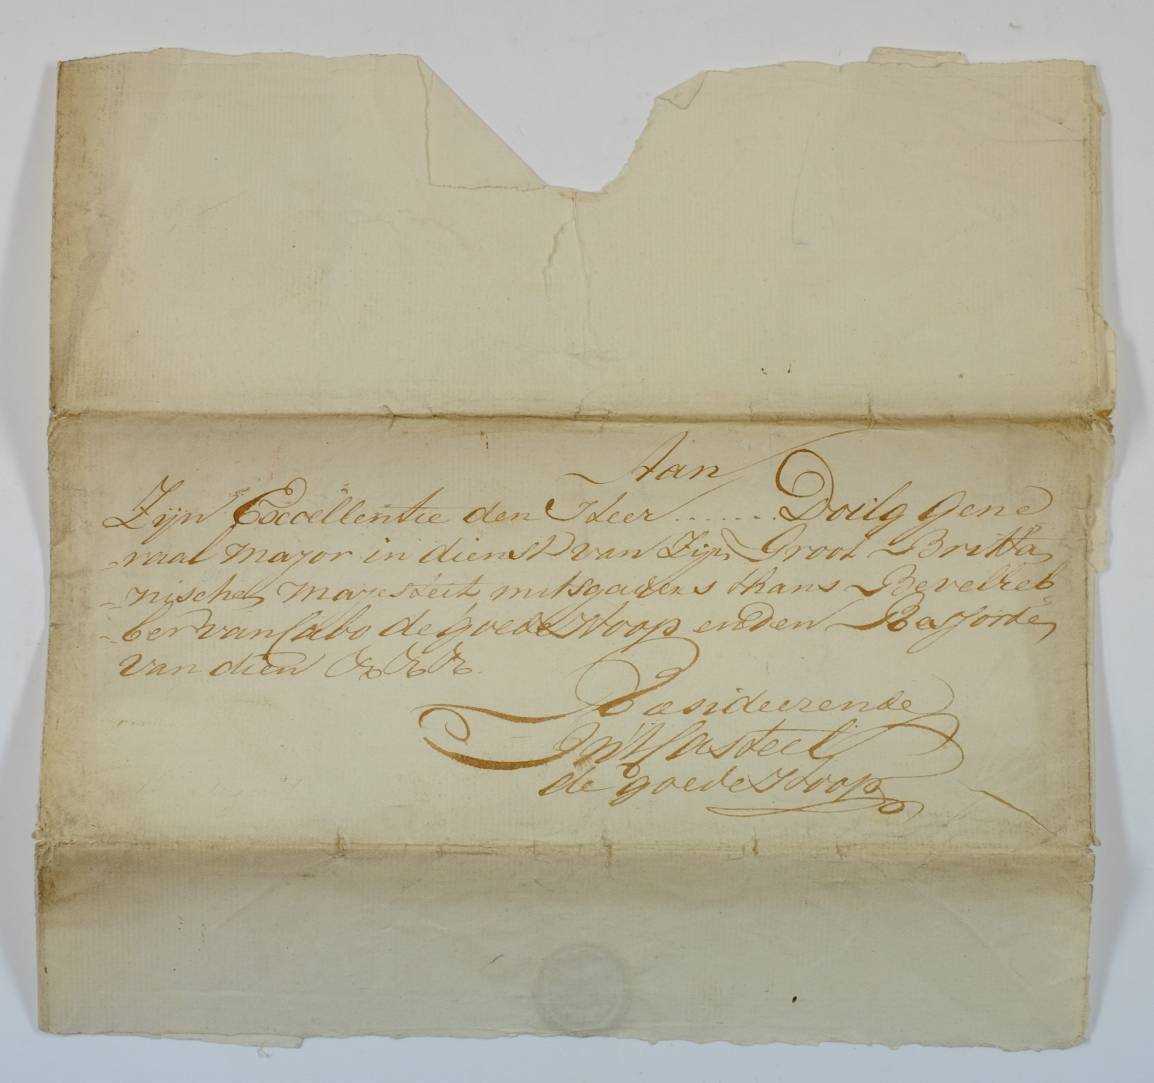 Aan
Zijn Excellentie den Heer ........ Doilg Gene
raal Mayor in dienst van Zijn Groot Britta
nische Mayesteit mitsgaders thans Bevelheb
ber van Cabo de goede Hoop en den
van dien &a &a &a
Resideerende
In't Casteel
de goede Hoop